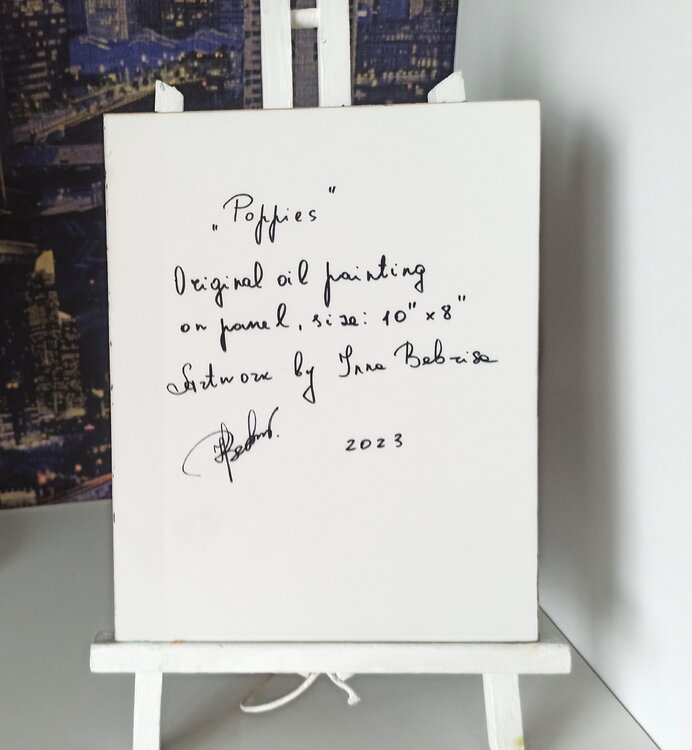 „Poppies"
Original oil painting
on panel, size: 10" x 8"
Artwork by Inna Bebrisa
2023